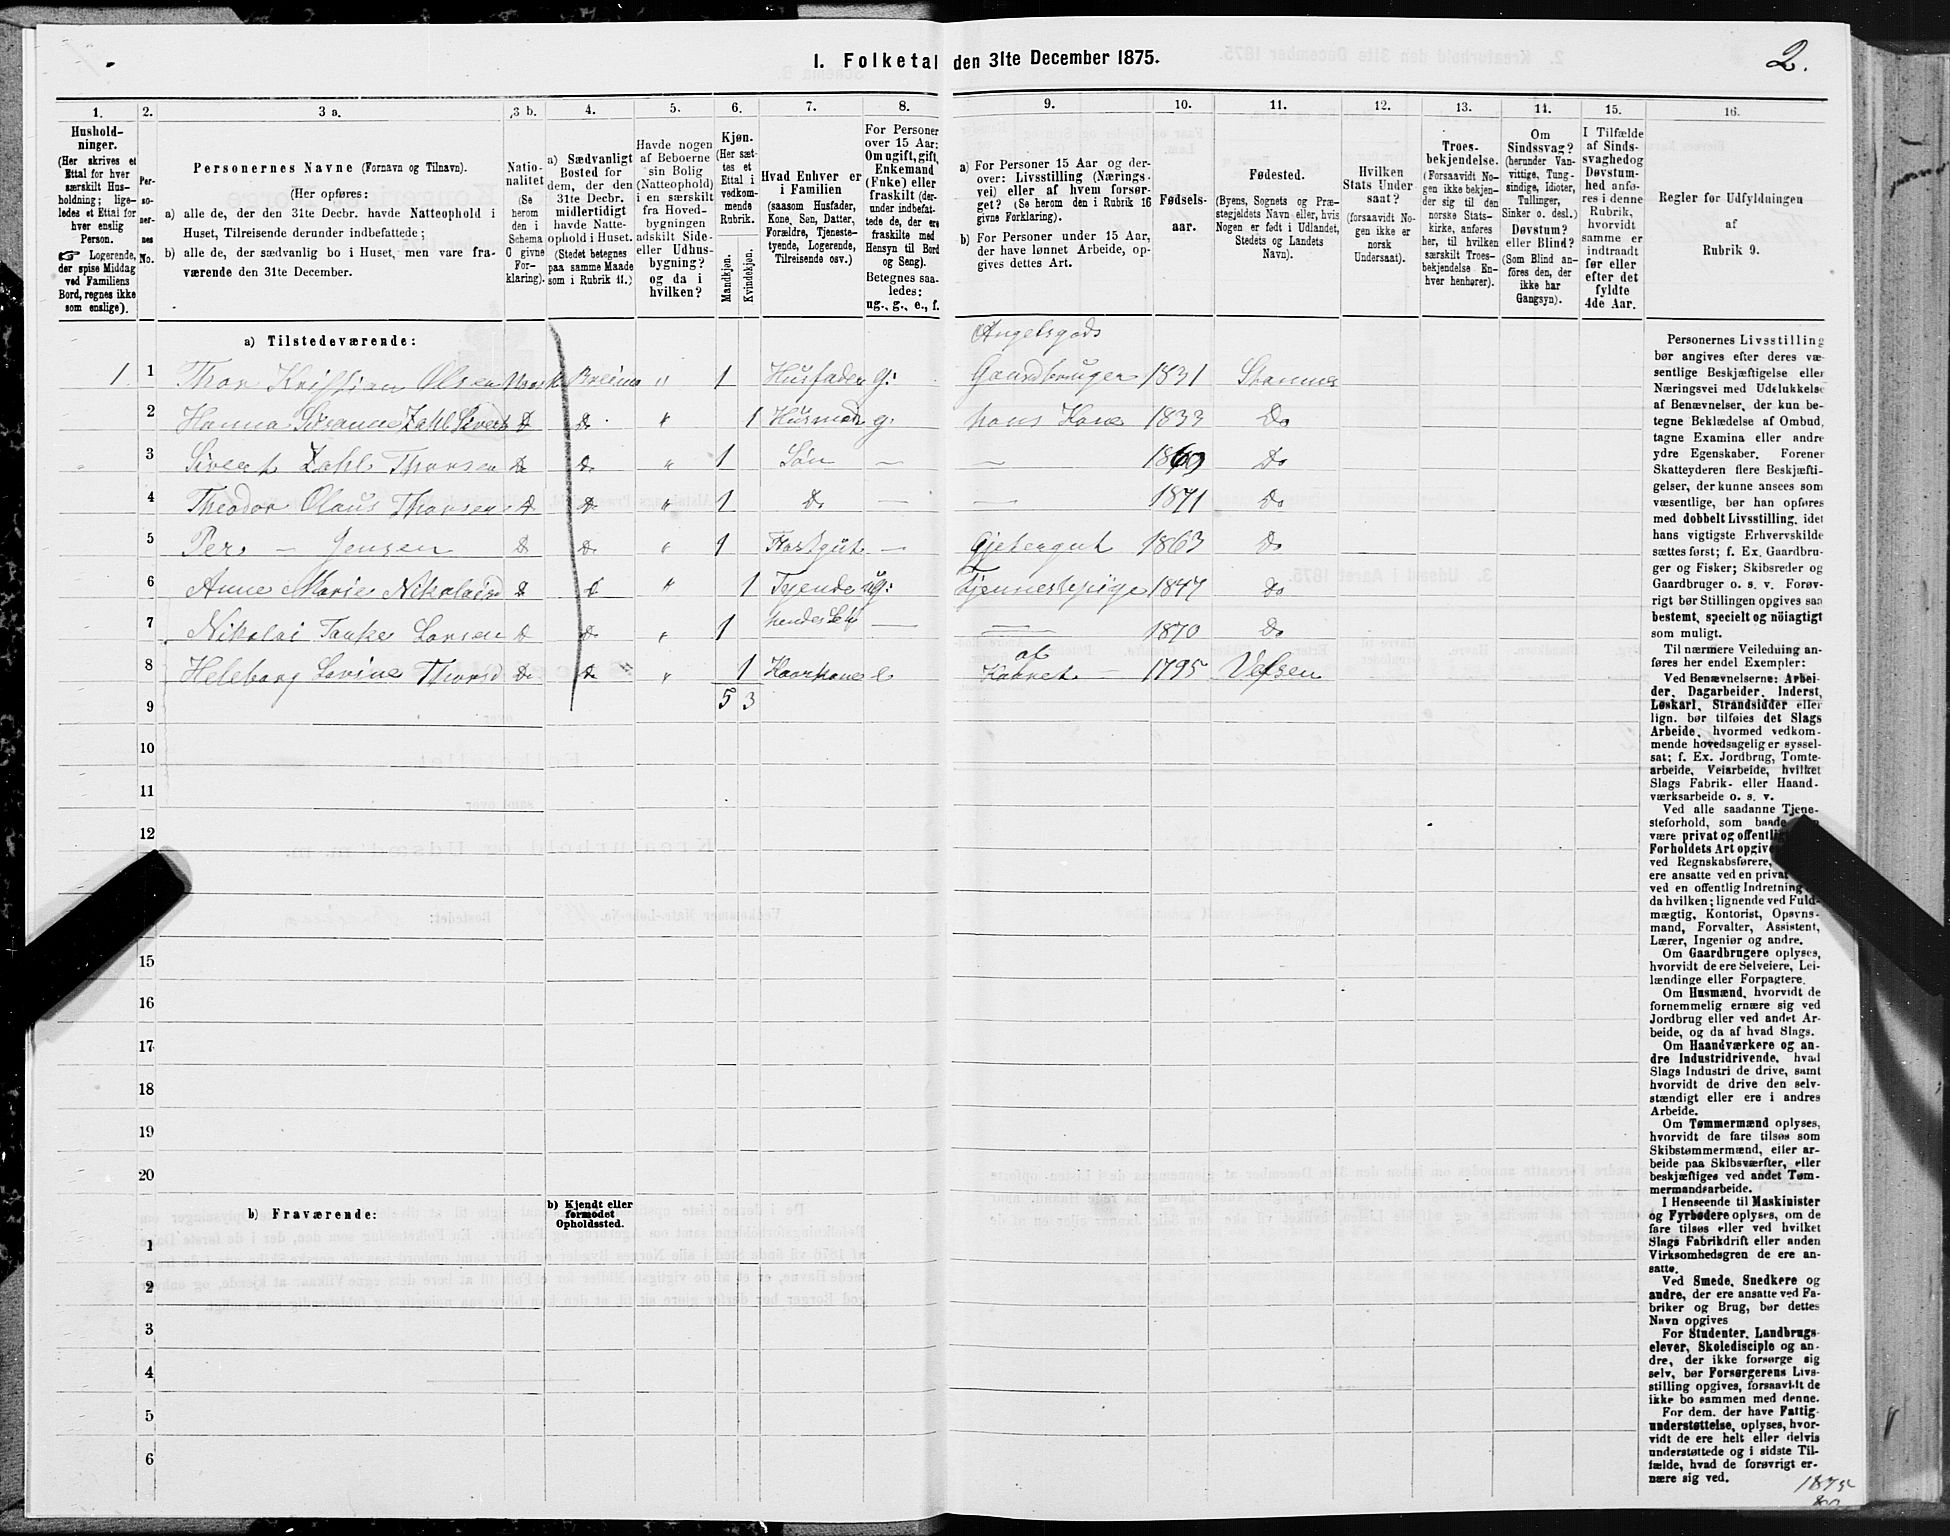 I. Folketal den 31te December 1875.
2.
1.
Hushold-
ninger.
(Her skrives et
Ettal for hver
særskilt Hus-
holdning; lige-
ledes et Ettal for
hver enslig
Person.
☞ Logerende,
der spise Middag
ved Familiens
Bord, regnes ikke
som enslige).
2.
Per-
so-
ner-
nes
No.
3 a.
Personernes Navne (Fornavn og Tilnavn).
(Her opføres:
a) alle de, der den 31te Decbr. havde Natteophold i
Huset, Tilreisende derunder indbefattede;
b) alle de, der sædvanlig bo i Huset, men vare fra-
værende den 31te December.
3 b.
Natio-
nalitet
(Se
herom
den i
Schema
C givne
For-
klaring).
4.
a) Sædvanligt
Bosted for
dem, der den
31te Decbr.
midlertidigt
havde Natte-
ophold i Huset.
(Stedet betegnes
paa samme Maade
som i Rubrik 11.)
5.
Havde nogen
af Beboerne
sin Bolig
(Natteophold)
i en særskilt
fra Hoved-
bygningen
adskilt Side-
eller Udhus-
bygning?
og da i
hvilken?
6.
Kjøn.
(Her sæt-
tes et
Ettal i
vedkom-
mende
Rubrik.
Mandkjøn.
Kvindekjøn.
7.
Hvad Enhver er
i Familien
(saasom Husfader,
Kone, Søn, Datter,
Forældre, Tjeneste-
tyende, Logerende,
Tilreisende osv.)
8.
For Personer
over 15 Aar:
Om ugift, gift,
Enkemand
(Enke) eller
fraskilt (der-
under indbefat-
tede de, der ere
fraskilte med
Hensyn til Bord
og Seng).
Betegnes saa-
ledes:
ug., g., e., f.
9.
a) For Personer 15 Aar og der-
over: Livsstilling (Nærings-
vei) eller af hvem forsør-
get? (Se herom den i Rubrik 16
givne Forklaring).
b) For Personer under 15 Aar,
der have lønnet Arbeide, op-
gives dettes Art.
10.
Fødsels-
aar.
11.
Fødested.
(Byens, Sognets og Præ-
stegjeldets Navn eller, hvis
Nogen er født i Udlandet,
Stedets og Landets
Navn).
12.
Hvilken
Stats Under
saat?
(forsaavidt No-
gen ikke er
norsk
Undersaat).
13.
Troes-
bekjendelse.
(Forsaavidt No-
gen ikke bekjen-
der sig til den
norske Stats-
kirke, anføres
her, til hvilken
særskilt Troes-
bekjendelse En-
hver henhører).
14.
Om
Sindssvag?
(herunder Van-
vittige, Tung-
sindige, Idioter,
Tullinger,
Sinker o. desl.)
Døvstum?
eller Blind?
(Som Blind an-
føres den, der
ikke har
Gangsyn).
15.
I Tilfælde
af Sinds-
svaghedog
Døvstum-
hed anfø-
res i denne
Rubrik,
hvorvidt
samme er
indtraadt
før eller
efter det
fyldte
4de Aar.
16.
Regler for Udfyldningen
af
Rubrik 9.
a) Tilstedeværende:
Angelsgods
1. 1 Thor Kristian Olsen Norsk Breimo " 1 Husfader g: Gaardbruger 1831 Stamnes
2 Hanna Susanne Zahl Sivert D D " 1 Husmor g. hans Kone 1833 Do
3 Sivert Zahl Thorsen Do Do " 1 Søn — — 1860 Do
4 Theodor Olaus Thorsen D Do " 1 Do — — 1871 Do
5 Per — Jensen D Do " 1 — Gjetergut 1863 Do
6 Anne Marie Nikolaisd D D " 1 Tyende ug: Tjennestepige 1847 Do
7 Nikolai Larsen D Do " 1 hendes — — 1870 Do
8 Lorine Thorsd Do Do " 1 e af — 1795 Vefsen
9 5 3
10
11
12
15
16
17
18
19
20
b) Fraværende:
b) Kjendt eller
formodet
Opholdssted.
1
2
3
4
5
6
Personernes Livsstilling
bør angives efter deres væ-
sentlige Beskjæftigelse eller
Næringsvei med Udelukkelse
af Benævnelser, der kun be-
tegne Beklædelse af Ombud,
tagne Examina eller andre
ydre Egenskaber. Forener
Skatteyderen flere Beskjæfti-
gelser, der kunne ansees som
væsentlige, bør han opføres
med dobbelt Livsstilling, idet
hans vigtigste Erhvervskilde
sættes først; f. Ex. Gaardbru-
ger og Fisker; Skibsreder og
Gaardbruger o. s. v. Forøv-
rigt bør Stillingen opgives saa
bestemt, specielt og nöiagtigt
som muligt.
Til nærmere Veiledning an-
føres her endel Exempler:
Ved Benævnelserne: Arbei-
der, Dagarbeider, Inderst,
Løskarl, Strandsidder eller
lign. bør tilføies det Slags
Arbeide, hvormed vedkom-
mende hovedsagelig er syssel-
sat; f. Ex. Jordbrug, Tomte-
arbeide, Veiarbeide, hvilket
Slags Fabrik- eller Haand-
værksarbeide o. s. v.
Ved alle saadanne Tjene-
steforhold, som baade
være privat og offentligt
Forholdets Art opgives
ved Regnskabsførere,
ere ansatte ved en privat
ved en offentlig Indretning
da hvilken; lignende ved Fuld-
mægtig, Kontorist, Opsyns-
mand, Forvalter, Assistent,
Lærer, Ingeniør og andre.
Om Gaardbrugere oplyses,
hvorvidt de ere Selveiere, Lei-
lændinge eller Forpagtere.
Om Husmænd, hvorvidt de
fornemmelig ernære sig ved
Jordbrug eller ved andet Ar-
beide, og da af hvad Slags.
Om Haandværkere og an-
dre Industridrivende, hvad
Slags Industri de drive, samt
hvorvidt de drive den selv-
stændigt eller ere i andres
Arbeide.
Om Tømmermænd oplyses,
hvorvidt de fare tilsøs som
Skibstømmermænd, eller ar-
beide paa Skibsværfter, eller
beskjæftiges ved andet Tøm-
mermandsarbeide.
I Henseende til Maskinister
og Fyrbødere oplyses, om de
fare tilsøs eller ved hvilket
Slags Fabrikdrift eller anden
Virksomhedsgren de ere an-
satte.
Ved Smede, Snedkere og
andre, der ere ansatte ved Fa-
briker og Brug, bør dettes
Navn opgives
For Studenter, Landbrugs-
elever, Skoledisciple og an-
dre, der ikke forsørge sig
selv, bør Forsørgerens Livs-
stilling opgives, forsaavidt de
ikke bo sammen med denne.
For dem, der have Fattig-
understøttelse, oplyses, hvor-
vidt de ere helt eller delvis
understøttede og i sidste Til-
fælde, hvad de forøvrigt er-
nære sig ved.
1875